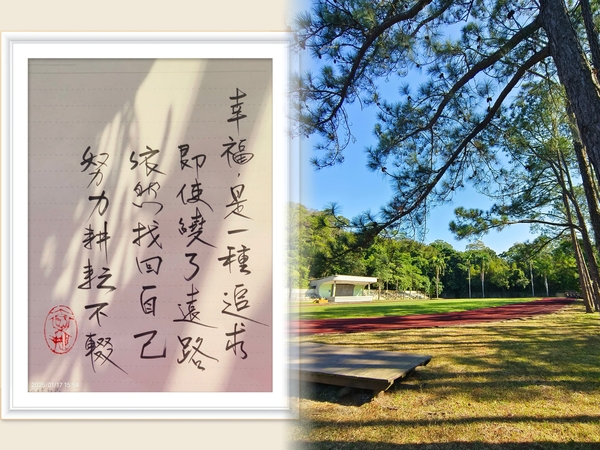 幸福,是一種追求
即使繞了遠路
依然找回自己
努力耕耘不輟